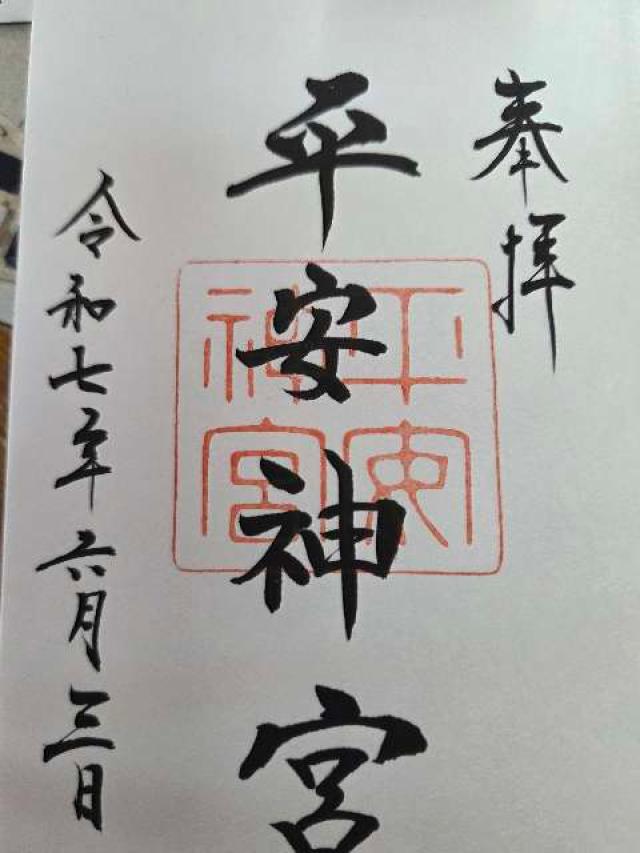 奉拝
平安神宮
平安神宮
令和七年六月三日